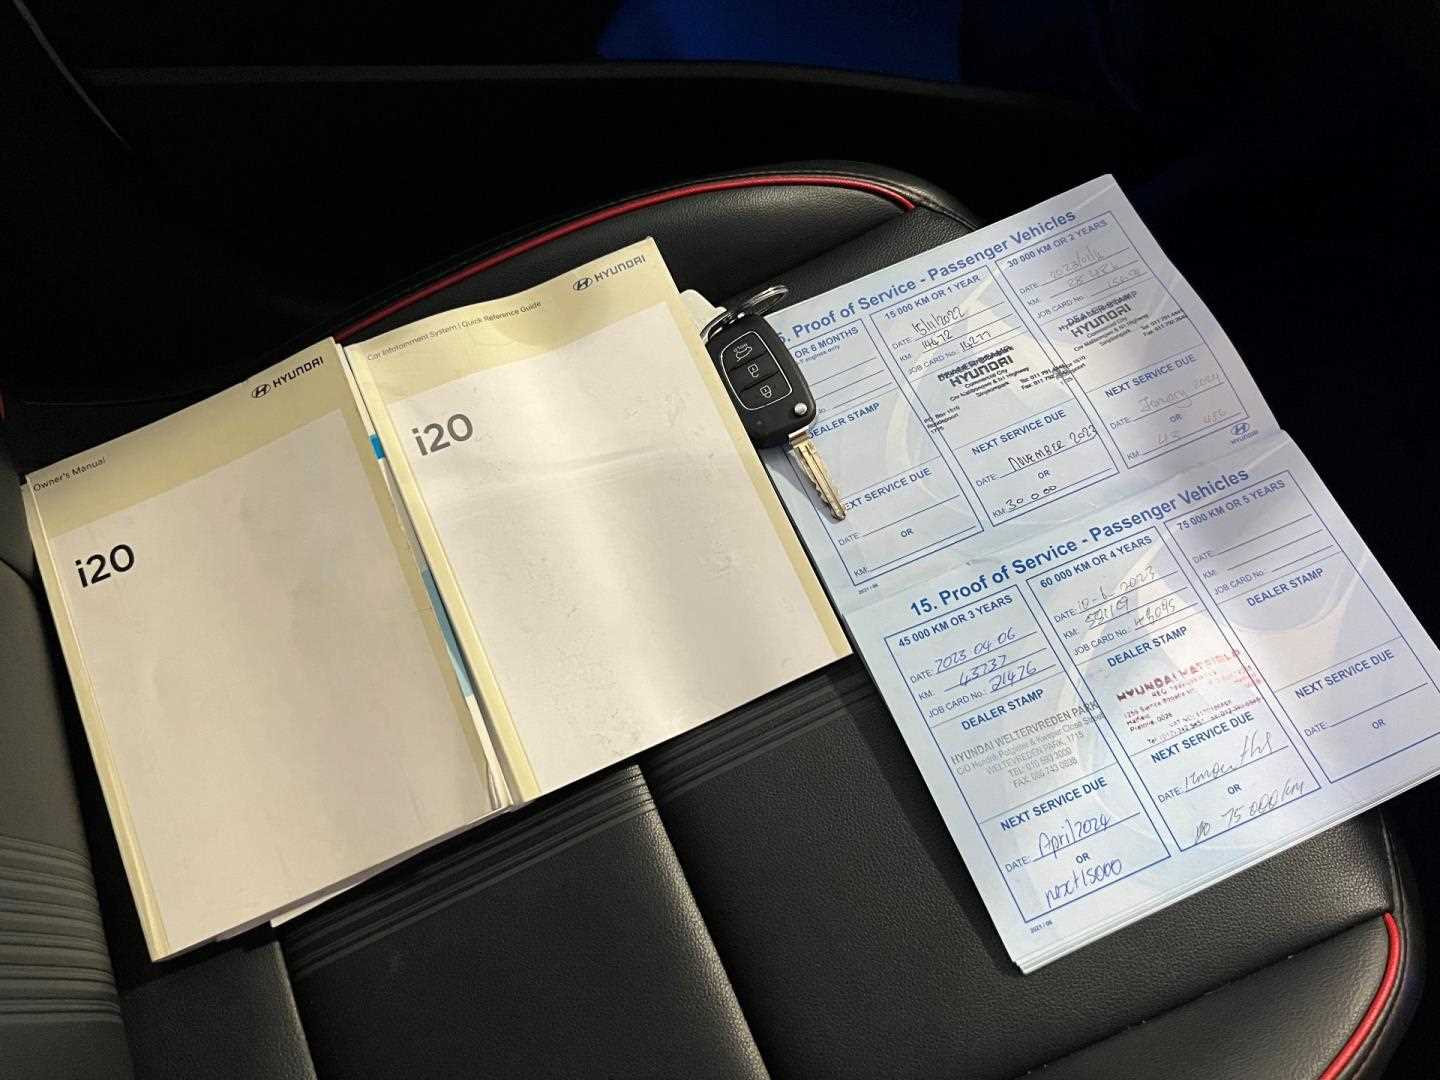 HYUNDAI
Owner's Manual
i20
HYUNDAI
Car Infotainment System | Quick Reference Guide
i20
5. Proof of Service - Passenger Vehicles
OR 6 MONTHS
DEALER STAMP
NEXT SERVICE DUE
DATE
OR
KM:
2021 / 06
15 000 KM OR 1 YEAR
DATE: 15/11/2022
KM: 14672
JOB CARD No.: 14277
HYUNDAI
Commercial City
NEXT SERVICE DUE
DATE: November 2023
OR
KM: 30 000
30 000 KM OR 2 YEARS
DATE:
KM:
JOB CARD No.:
DEALER STAMP
HYUNDAI
NEXT SERVICE DUE
DATE: January 2024
OR
KM: 43 456
HYUNDAI
15. Proof of Service - Passenger Vehicles
45 000 KM OR 3 YEARS
DATE: 2023 04 06
KM: 43737
JOB CARD No.: 21476
DEALER STAMP
HYUNDAI WELTEVREDEN PARK
WELTEVREDEN PARK, 1715
NEXT SERVICE DUE
DATE: April 2024
OR
next 15000
2021 / 06
60 000 KM OR 4 YEARS
DATE: 10-6-2023
KM:
JOB CARD No.:
DEALER STAMP
HYUNDAI HATFIELD
NEXT SERVICE DUE
DATE:
OR
75 000 km
75 000 KM OR 5 YEARS
DATE:
KM:
JOB CARD No.:
DEALER STAMP
NEXT SERVICE DUE
DATE:
OR